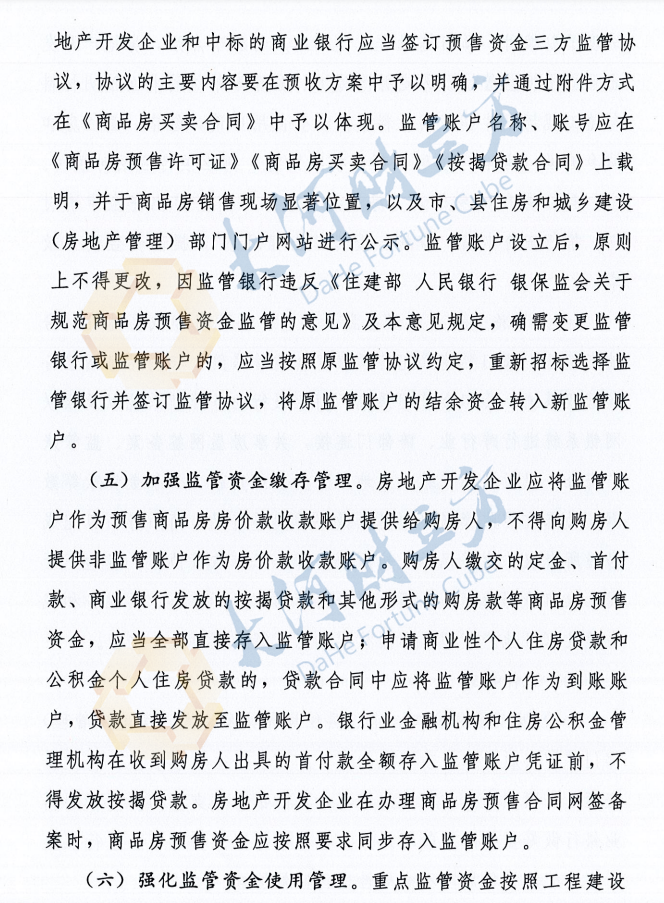 地产开发企业和中标的商业银行应当签订预售资金三方监管协
议，协议的主要内容要在预收方案中予以明确，并通过附件方式
在《商品房买卖合同》中予以体现。监管账户名称、账号应在
《商品房预售许可证》《商品房买卖合同》《按揭贷款合同》上载
明，并于商品房销售现场显著位置，以及市、县住房和城乡建设
（房地产管理）部门门户网站进行公示。监管账户设立后，原则
上不得更改，因监管银行违反《住建部 人民银行 银保监会关于
规范商品房预售资金监管的意见》及本意见规定，确需变更监管
银行或监管账户的，应当按照原监管协议约定，重新招标选择监
管银行并签订监管协议，将原监管账户的结余资金转入新监管账
户。
（五）加强监管资金缴存管理。房地产开发企业应将监管账
户作为预售商品房房价款收款账户提供给购房人，不得向购房人
提供非监管账户作为房价款收款账户。购房人缴交的定金、首付
款、商业银行发放的按揭贷款和其他形式的购房款等商品房预售
资金，应当全部直接存入监管账户；申请商业性个人住房贷款和
公积金个人住房贷款的，贷款合同中应将监管账户作为到账账
户，贷款直接发放至监管账户。银行业金融机构和住房公积金管
理机构在收到购房人出具的首付款全额存入监管账户凭证前，不
得发放按揭贷款。房地产开发企业在办理商品房预售合同网签备
案时，商品房预售资金应按照要求同步存入监管账户。
（六）强化监管资金使用管理。重点监管资金按照工程建设
大河财立方
DaHe Fortune Cube
大河财立方
DaHe Fortune Cube